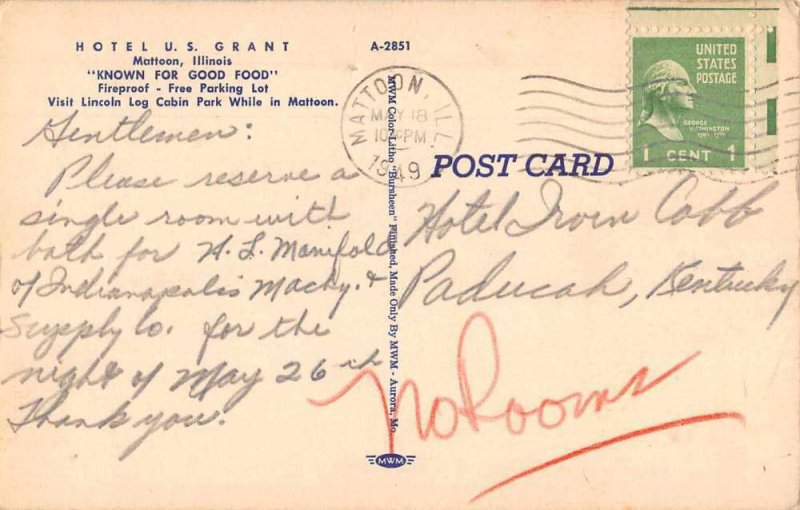 HOTEL U.S. GRANT
Mattoon, Illinois
"KNOWN FOR GOOD FOOD"
Fireproof - Free Parking Lot
Visit Lincoln Log Cabin Park While in Mattoon.
A-2851
Gentlemen:
Please reserve a
single room with
bath for H. L. Manifold
of Indianapolis Machy. &
Supply Co. for the
night of May 26th
Thank you.
MWM Color-Litho "Bursheen" Finished, Made Only By MWM - Aurora, Mo.
MWM
MATTOON, ILL.
MAY 18
PM
1949
POST CARD
UNITED
STATES
POSTAGE
GEORGE
WASHINGTON
1 CENT 1
Hotel Irvin Cobb
Paducah, Kentucky
No Rooms